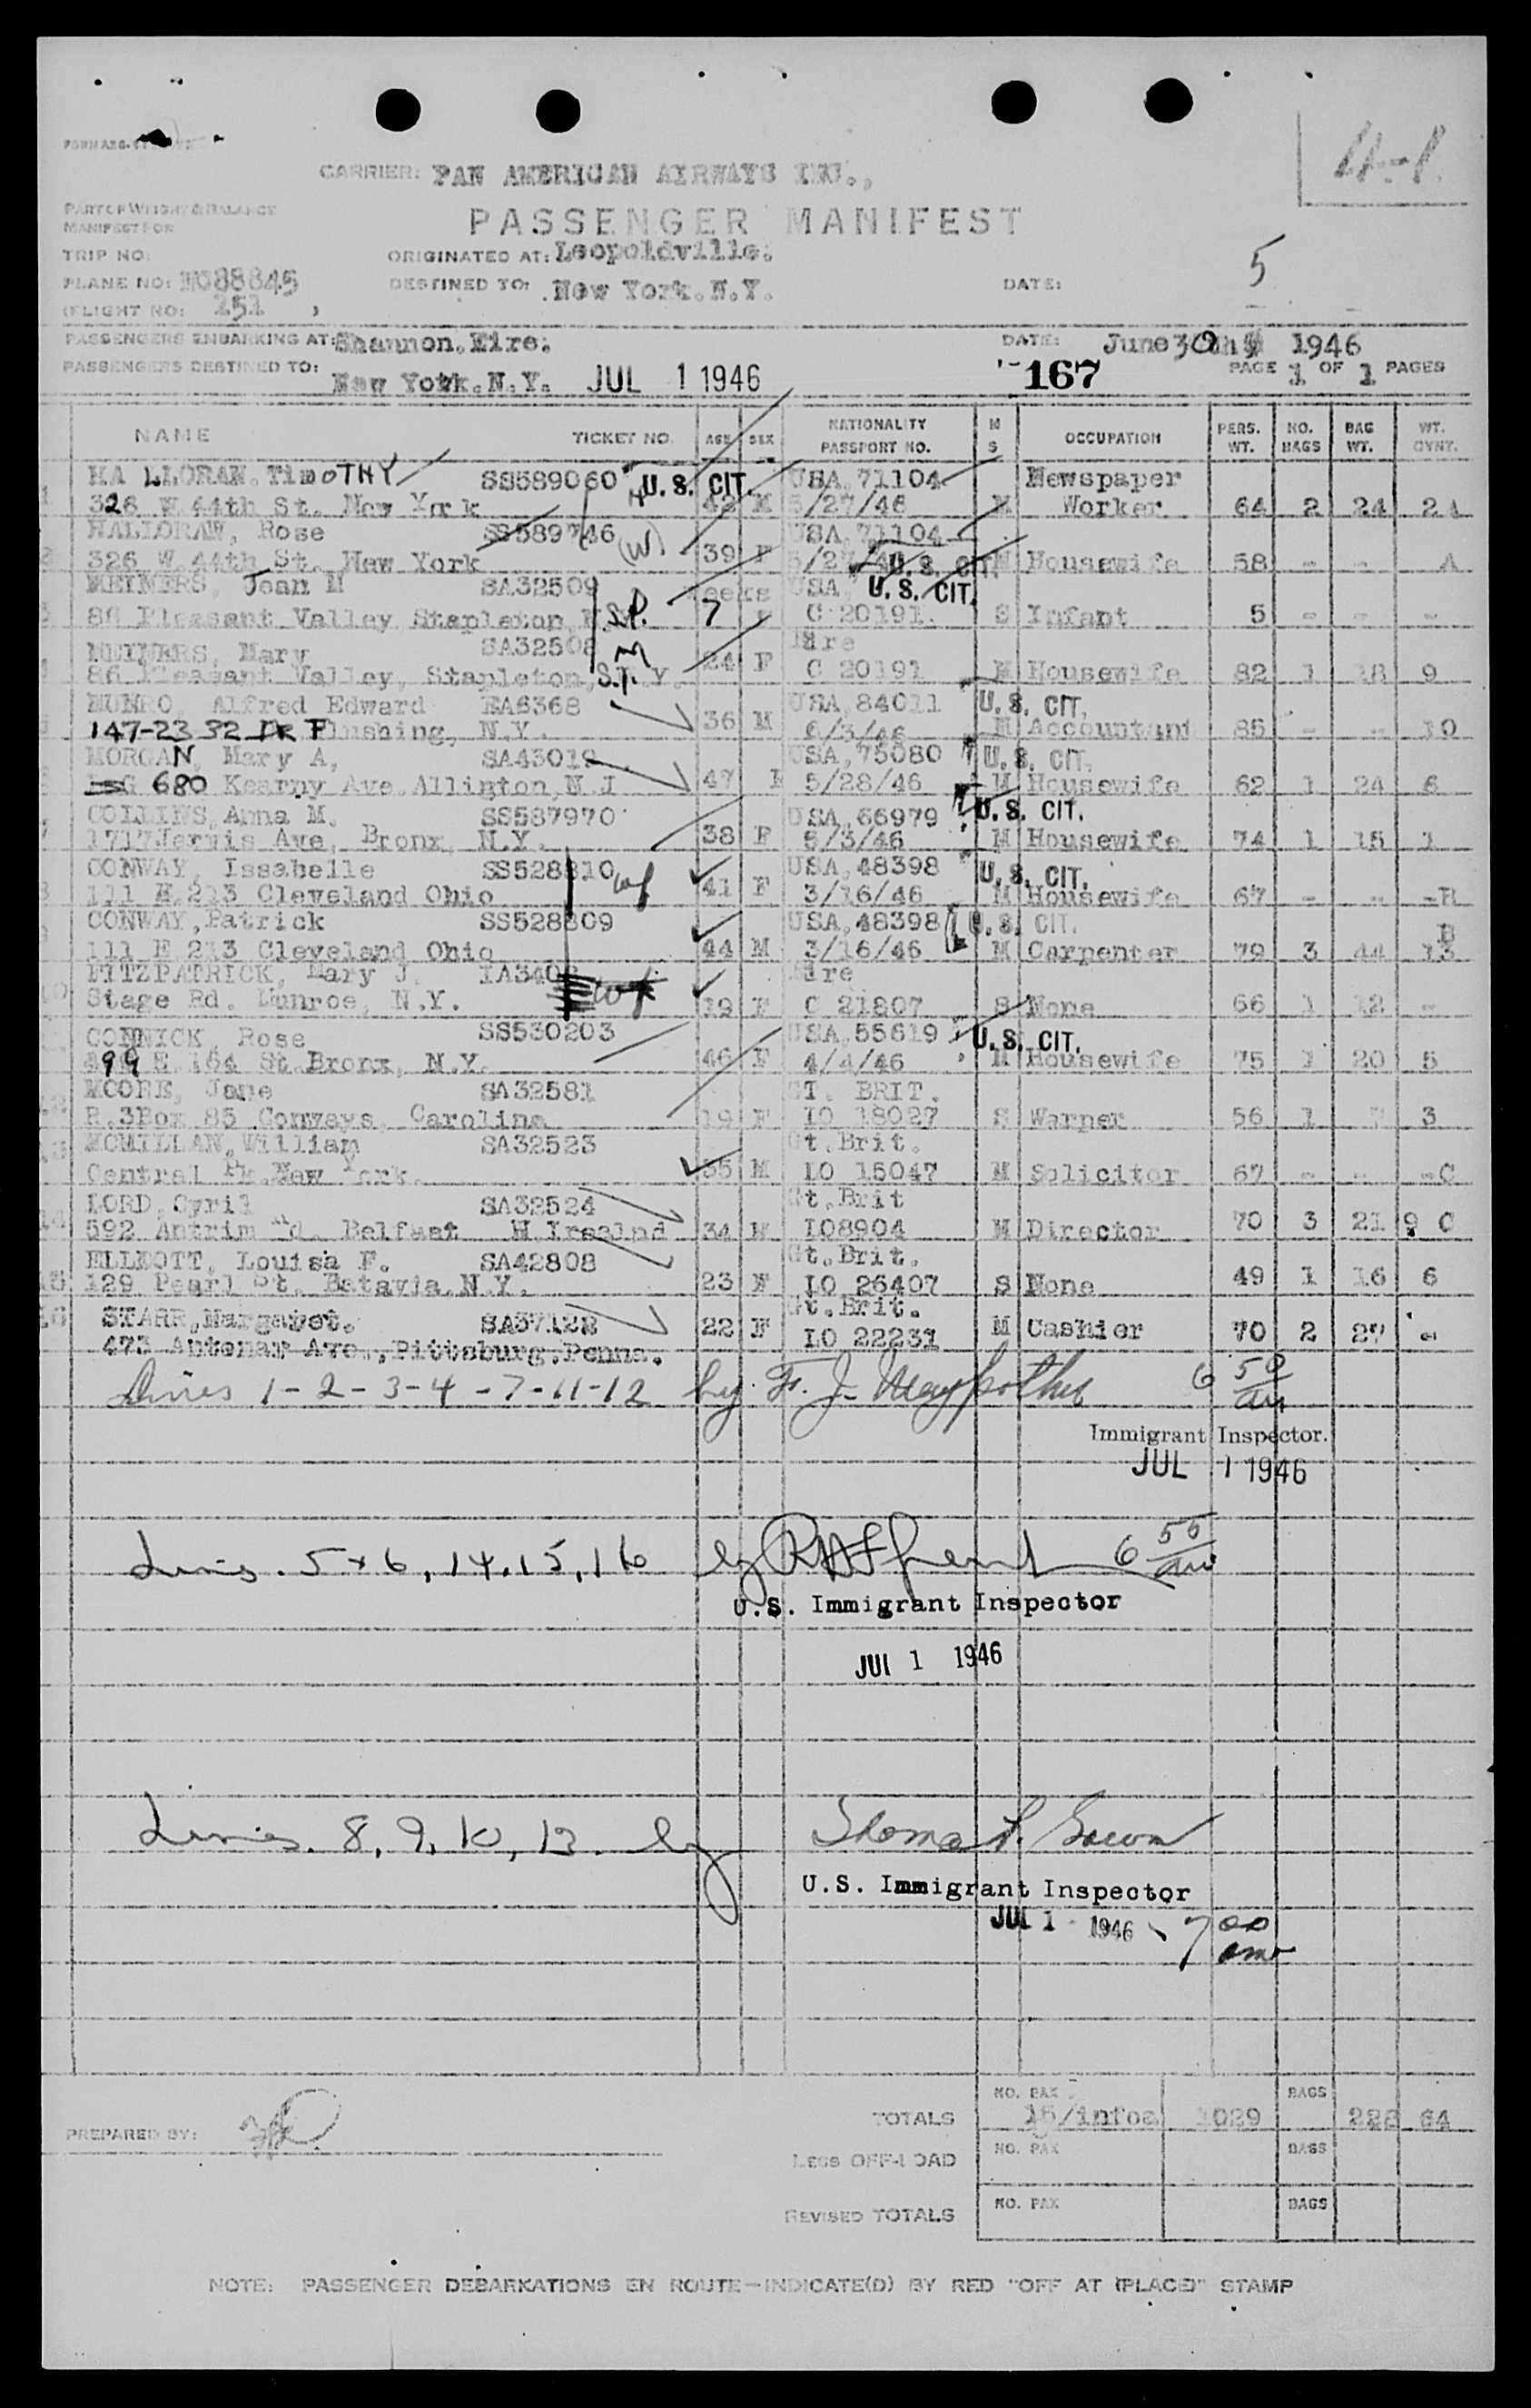 4-1
CARRIER: PAN AMERICAN AIRWAYS INC.,
PART OF WEIGHT & BALANCE
MANIFEST FOR
PASSENGER MANIFEST
TRIP NO:
ORIGINATED AT: Leopoldville.
PLANE NO: NC88845
DESTINED TO: New York.N.Y.
DATE:
5
(FLIGHT NO: 151 )
PASSENGERS EMBARKING AT: Shannon.Eire.
DATE: June 30 1946
PASSENGERS DESTINED TO: New York.N.Y. JUL 1 1946
167
PAGE 1 OF 1 PAGES
NAME TICKET NO. AGE SEX NATIONALITY PASSPORT NO. M S OCCUPATION PERS. WT. NO. BAGS BAG WT. WT. OVNT.
HA LLORAN.TIMOTHY SS589060 U.S. CIT. USA 71104 Newspaper
1 326 W 44th St. New York 42 M 5/27/46 M Worker 64 2 24 2A
HALLORAN, Rose SS589746 (W) USA 71104
2 326 W.44th St. New York 39 F 5/27/46 U.S. CIT. M Housewife 58 - - A
MEINERS, Joan M SA32509 weeks USA U.S. CIT.
3 86 Pleasant Valley Stapleton 7 C 20191 S Infant 5 - - -
MEINERS, Mary SA32508 Eire
4 86 Pleasant Valley, Stapleton, S.I. Y. 24 F C 20191 M Housewife 82 1 18 9
MUNRO, Alfred Edward EA6368 USA 84011 U.S. CIT.
5 147-23 32 Flushing, N.Y. 36 M 6/3/46 M Accountant 85 - - 10
MORGAN, Mary A, SA43019 USA,75080 U.S. CIT.
6 680 Kearny Ave Allington,N J 47 F 5/28/46 M Housewife 62 1 24 6
COLLINS,Anna M. SS587970 USA,66979 U.S. CIT.
7 1717 Jarvis Ave, Bronx, N.Y. 38 F 5/3/46 M Housewife 74 1 15 1
CONWAY, Issabelle SS528810 wf USA 48398 U.S. CIT.
8 111 E.213 Cleveland Ohio 41 F 3/16/46 M Housewife 67 - - -B
CONWAY,Patrick SS528809 USA,48398 U.S. CIT.
9 111 E 213 Cleveland Ohio 44 M 3/16/46 M Carpenter 79 3 44 B 13
FITZPATRICK, Mary J. IA3402 Eire
10 Stage Rd. Munroe, N.Y. 19 F C 21807 S None 66 1 12 -
CONNICK, Rose SS530203 USA,55619 U.S. CIT.
499 E 164 St.Bronx, N.Y. 46 F 4/4/46 M Housewife 75 1 20 5
MOORE, Jane SA32581 GT. BRIT.
12 R.3Box 85 Conways, Carolina 19 F IO 18027 S Warper 56 1 3
13 MCMILLAN,William SA32523 Gt.Brit.
Central Pk.New York. 35 M IO 15047 M Solicitor 67 - - -C
LORD,Cyril SA32524 Gt.Brit
14 592 Antrim Rd. Belfast 34 M IO8904 M Director 70 3 21 9 C
ELLIOTT, Louisa F. SA42808 Gt.Brit.
15 129 Pearl St. Batavia,N.Y. 23 F IO 26407 S None 49 1 16 6
16 STARR,Margaret. SA37122 22 F Gt.Brit. IO 22231 M Cashier 70 2 27 -
473 Antenar Ave.,Pittsburg.Penna.
Lines 1-2-3-4-7-11-12 by F. J. Maypother 6 50 am
Immigrant Inspector.
JUL 1 1946
Lines. 5 + 6, 14, 15, 16 by 6 55 am
U.S. Immigrant Inspector
JUL 1 1946
Lines. 8, 9, 10, 13. by
U.S. Immigrant Inspector
JUL 1 1946 7 00 am
NO. PAX BAGS
TOTALS 1029 222 64
PREPARED BY:
LESS OFF-LOAD NO. PAX BAGS
REVISED TOTALS NO. PAX BAGS
NOTE: PASSENGER DEBARKATIONS EN ROUTE—INDICATE(D) BY RED "OFF AT (PLACE)" STAMP